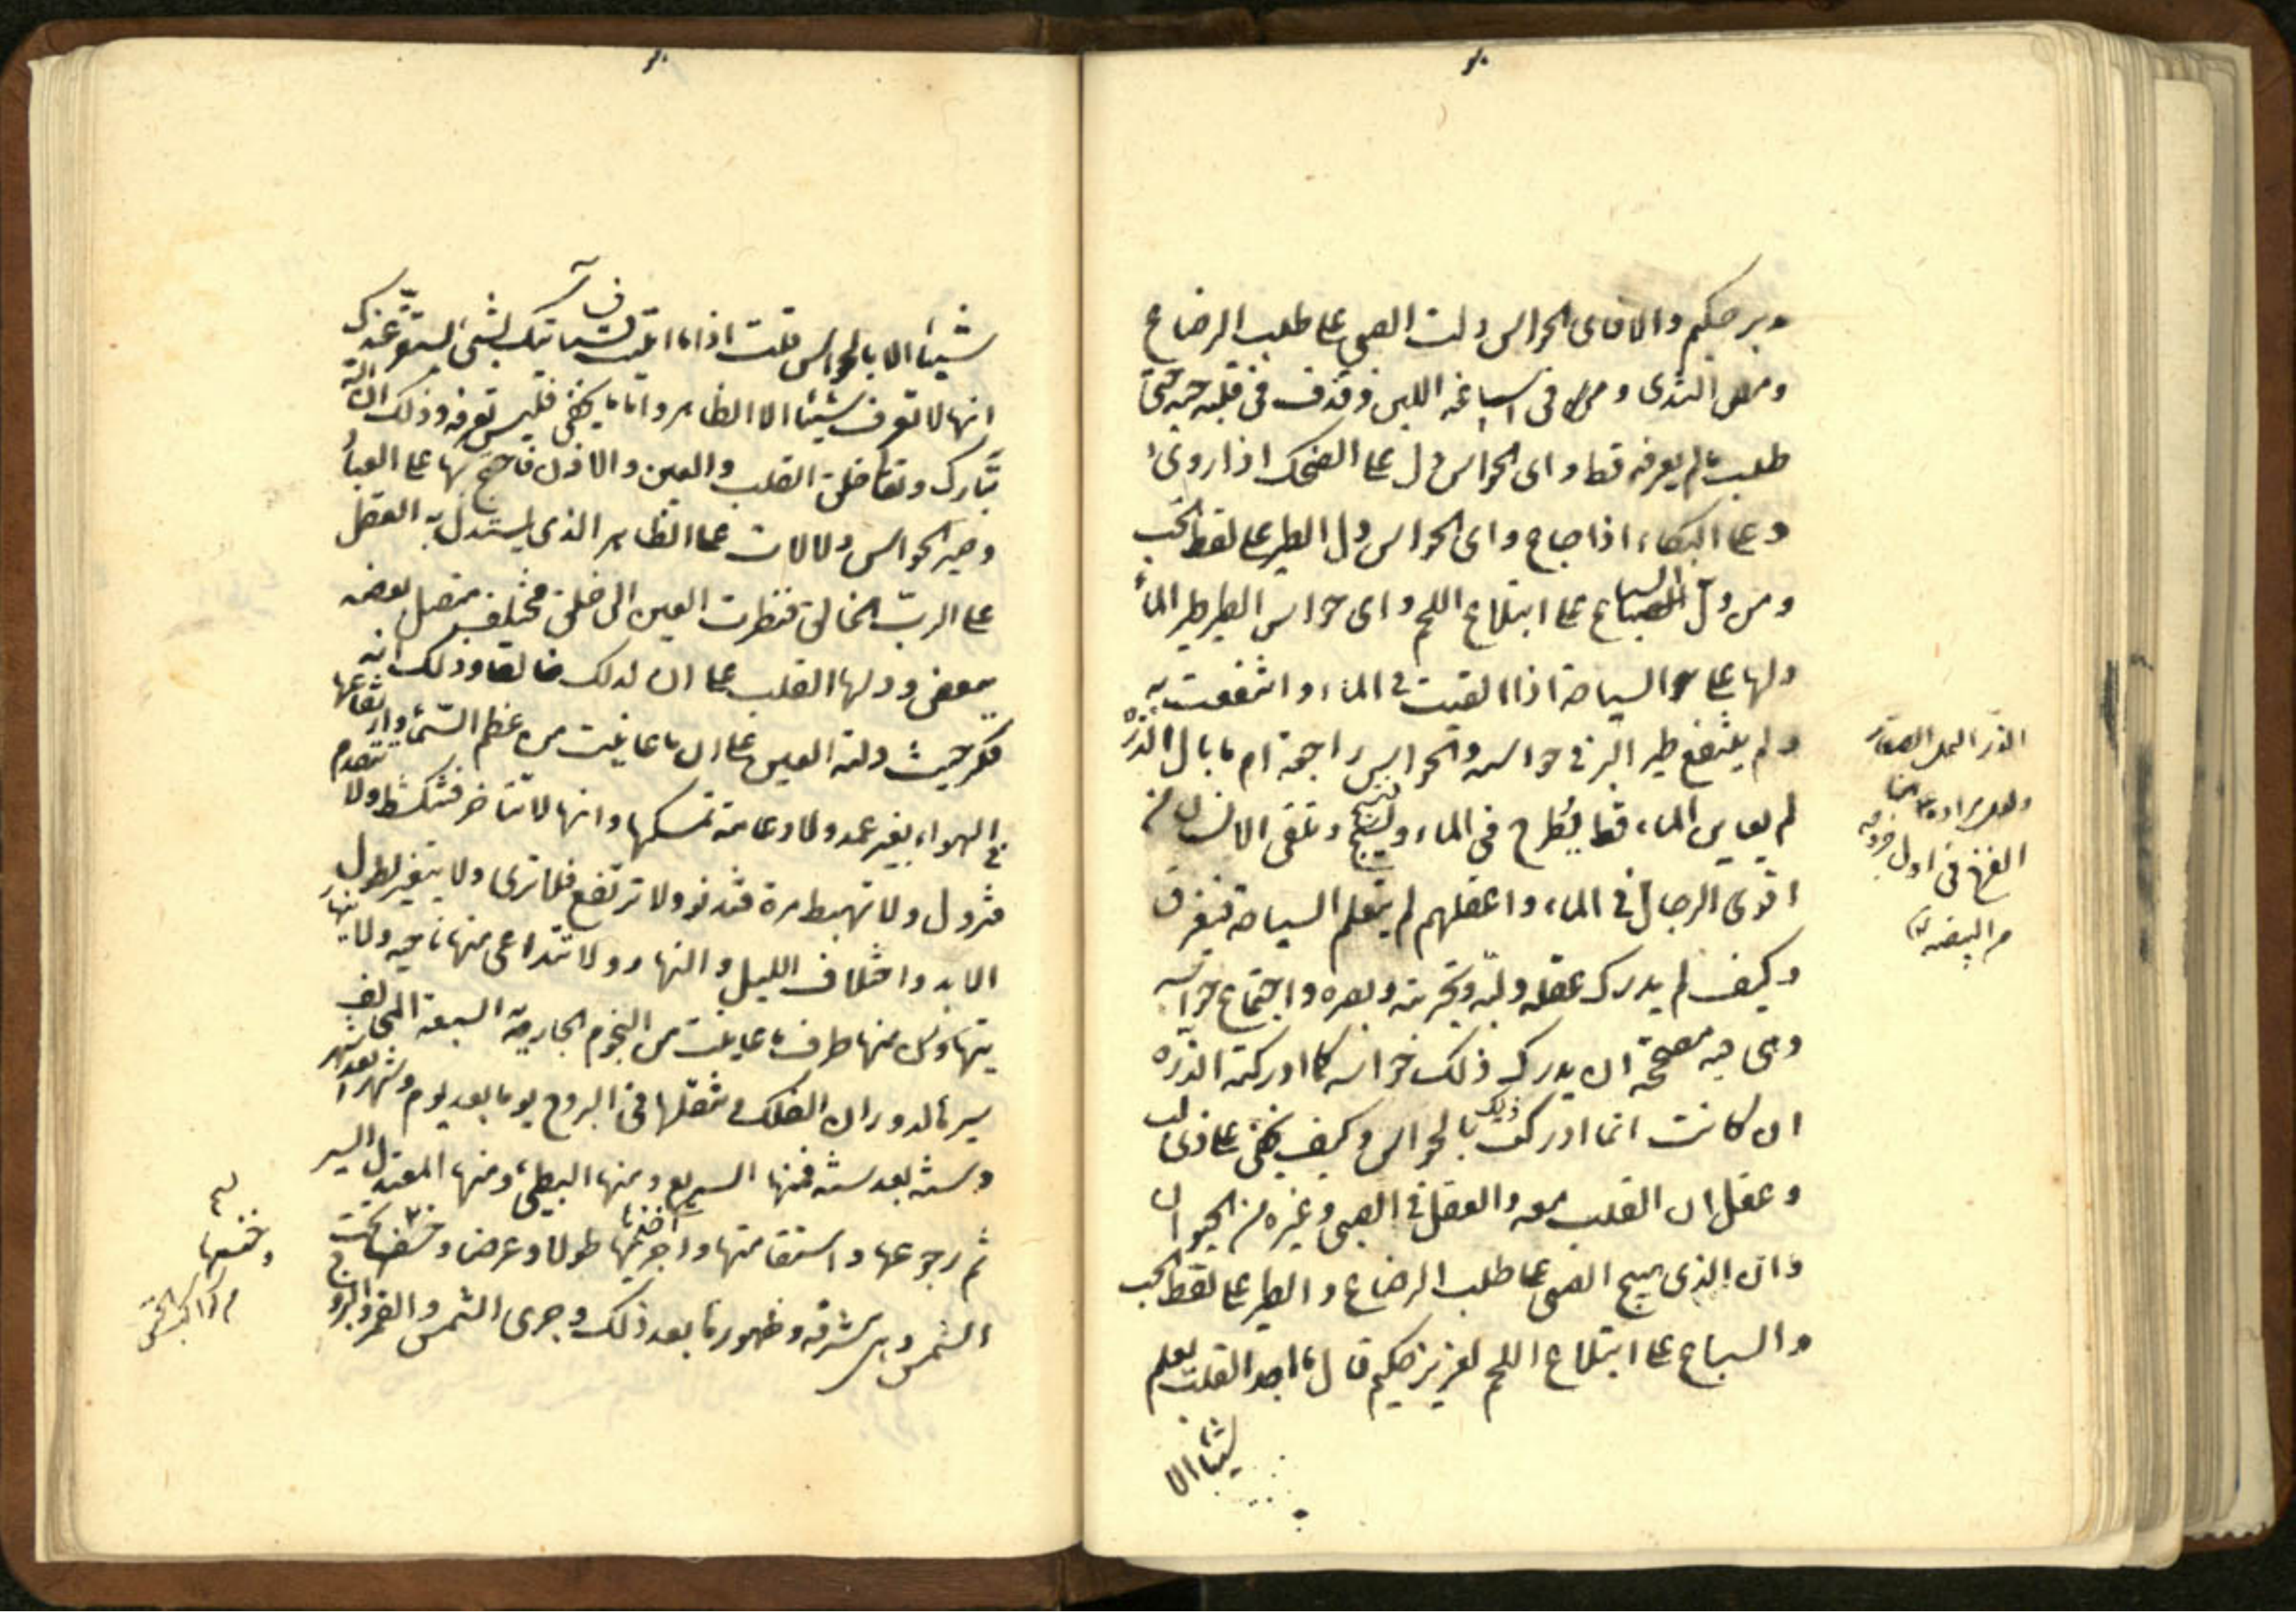 مدبر حكيم والا فاى الحواس دلت الصبى على طلب الرضاع
ومص الثدى ومن اسباغه اللبن وقذف فى قلبه حتى
طلب ما لم يعرفه قط واى الحواس دل على الضحك اذا روى
وعلى البكاء اذا جاع واى الحواس دل الطير على لقط الحب
ومن دل السباع على ابتلاع اللحم واى حواس الطير طير الماء
دلها على السباحة اذا القيت فى الماء وانتفعت به
ولم ينتفع طير البر فى حواسه والحواس واحدة ام ما بال الذره
لم يعاين الماء قط يطرح فى الماء ويسبح وتلقى الانسان من
اقوى الرجال فى الماء واعقلهم لم يتعلم السباحة فيغرق
وكيف لم يدرك عقله ولبه وتجربته وبصره واجتماع حواسه
وهى فيه صحيحة ان يدرك ذلك بحواسه كما ادركته الذره
ان كانت انما ادركت ذلك بالحواس وكيف يخفى على ذى لب
وعقل ان القلب معه والعقل فى الصبى وغيره من الحيوان
وان الذى يهيج الصبى على طلب الرضاع والطير على لقط الحب
والسباع على ابتلاع اللحم لعزيز حكيم قال ما اجد القلب يعلم
شيئا الا
الذر النمل الصغار
الفرخ فى اول خروجه
من البيضه
شيئا الا بالحواس قلت اذا ما ابيت فسآتيك بشئ لتعرف عندك
انها لا تعرف شيئا الا الظاهر واما ما يخفى فليس تعرفه وذلك ان الله
تبارك وتعالى خلق القلب والعين والاذن فاحتج بها على العباد
وصير الحواس دلالات على الظاهر الذى يستدل به العقل
على الرب الخالق فنظرت العين الى خلق مختلف متصل بعضه
ببعض ودلها القلب على ان لذلك خالقا وذلك انه
فكر حيث دلته العين على ان ما عاينت من عظم السماء وارتفاعها
فى الهواء بغير عمد ولا دعامة تمسكها وانها لا تتاخر فتكشط ولا تتقدم
فتزول ولا تهبط مرة فتدنو ولا ترتفع فلا ترى ولا يتغير لطول
الابد واختلاف الليل والنهار ولا تتداعى منها ناحيه ولا ينهار
بنيانها وكل منها طرف ما عاينت من النجوم الجارية السبعة المخالف
سيرها لدوران الفلك وتنقلها فى البروج يوما بعد يوم وشهرا بعد شهر
وسنه بعد سنه فمنها السريع ومنها البطئ ومنها المعتدل السير
ثم رجوعها واستقامتها واجريها واخذها طولا وعرضا وخنسها تحت
الشمس وهى مشرقه وظهورها بعد ذلك وجرى الشمس والقمر والبروج
وخنسها